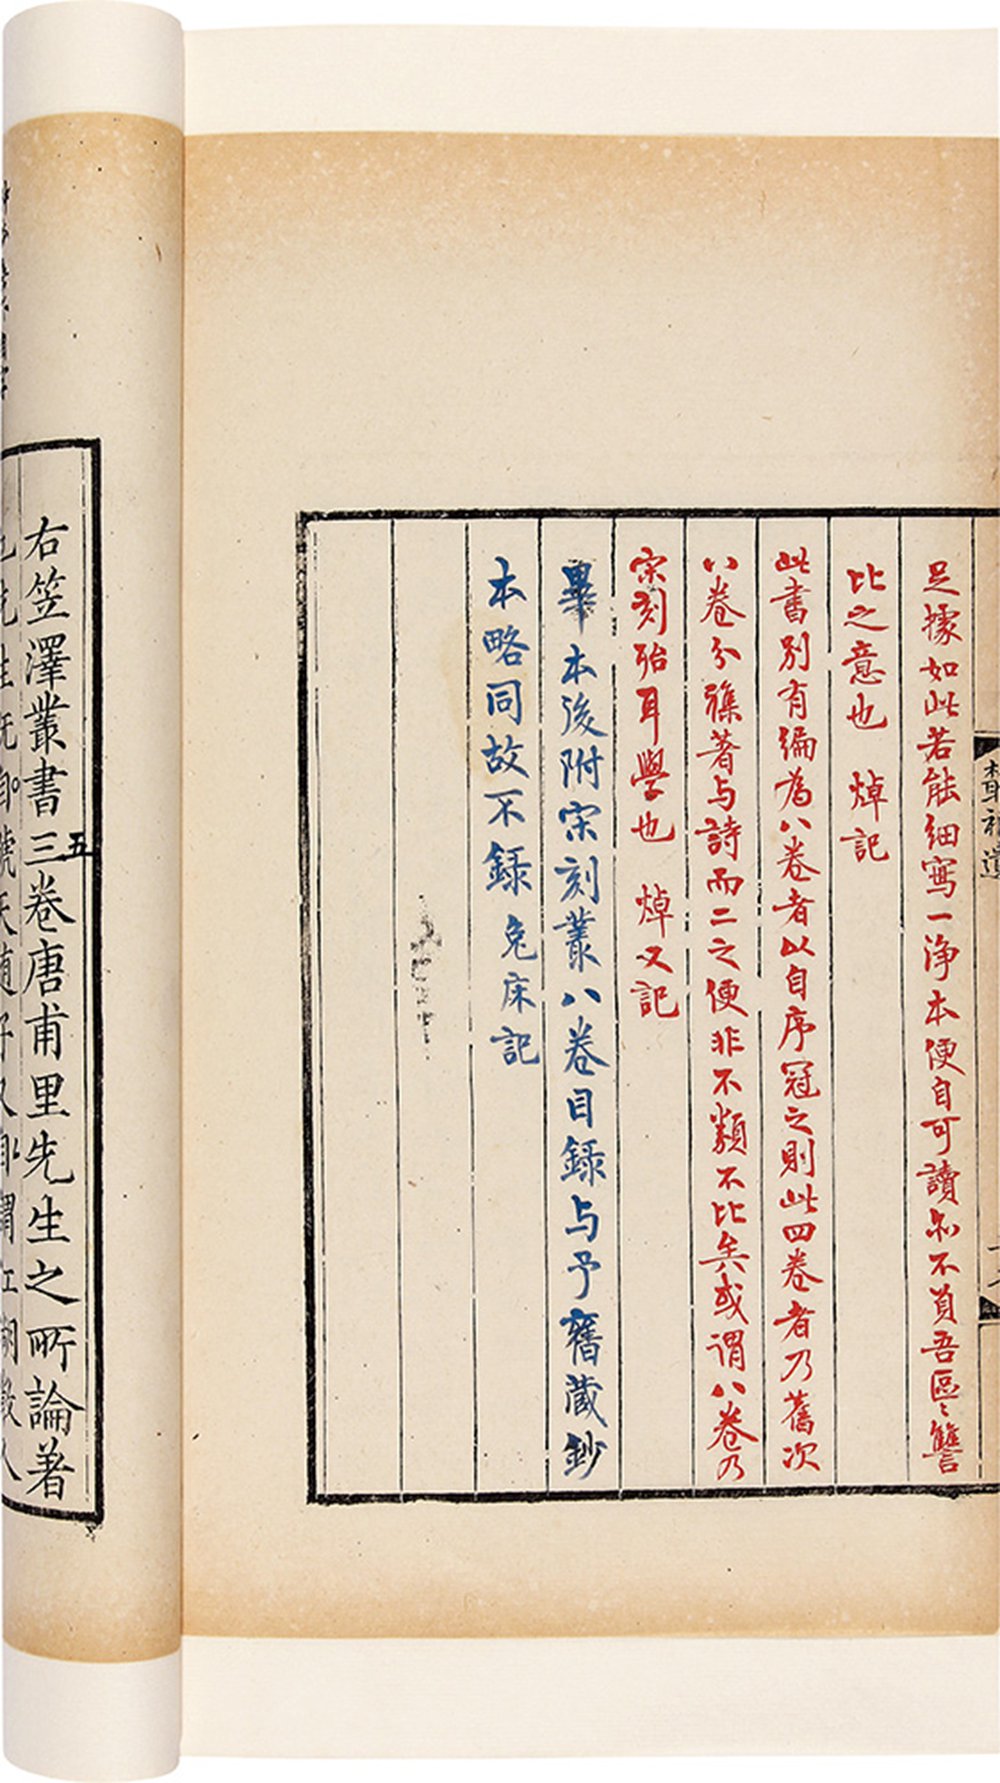 足據如此若能細寫一淨本便自可讀亦不負吾區〻讐
比之意也　焯記
此書別有編為八卷者以自序冠之則此四卷者乃舊次
八卷分襍著与詩而二之便非不類不比矣或謂八卷乃
宋刻殆耳學也　焯又記
畢本後附宋刻叢八卷目録与予舊藏鈔
本略同故不録　兔床記
右笠澤叢書三卷唐甫里先生之所論著
五